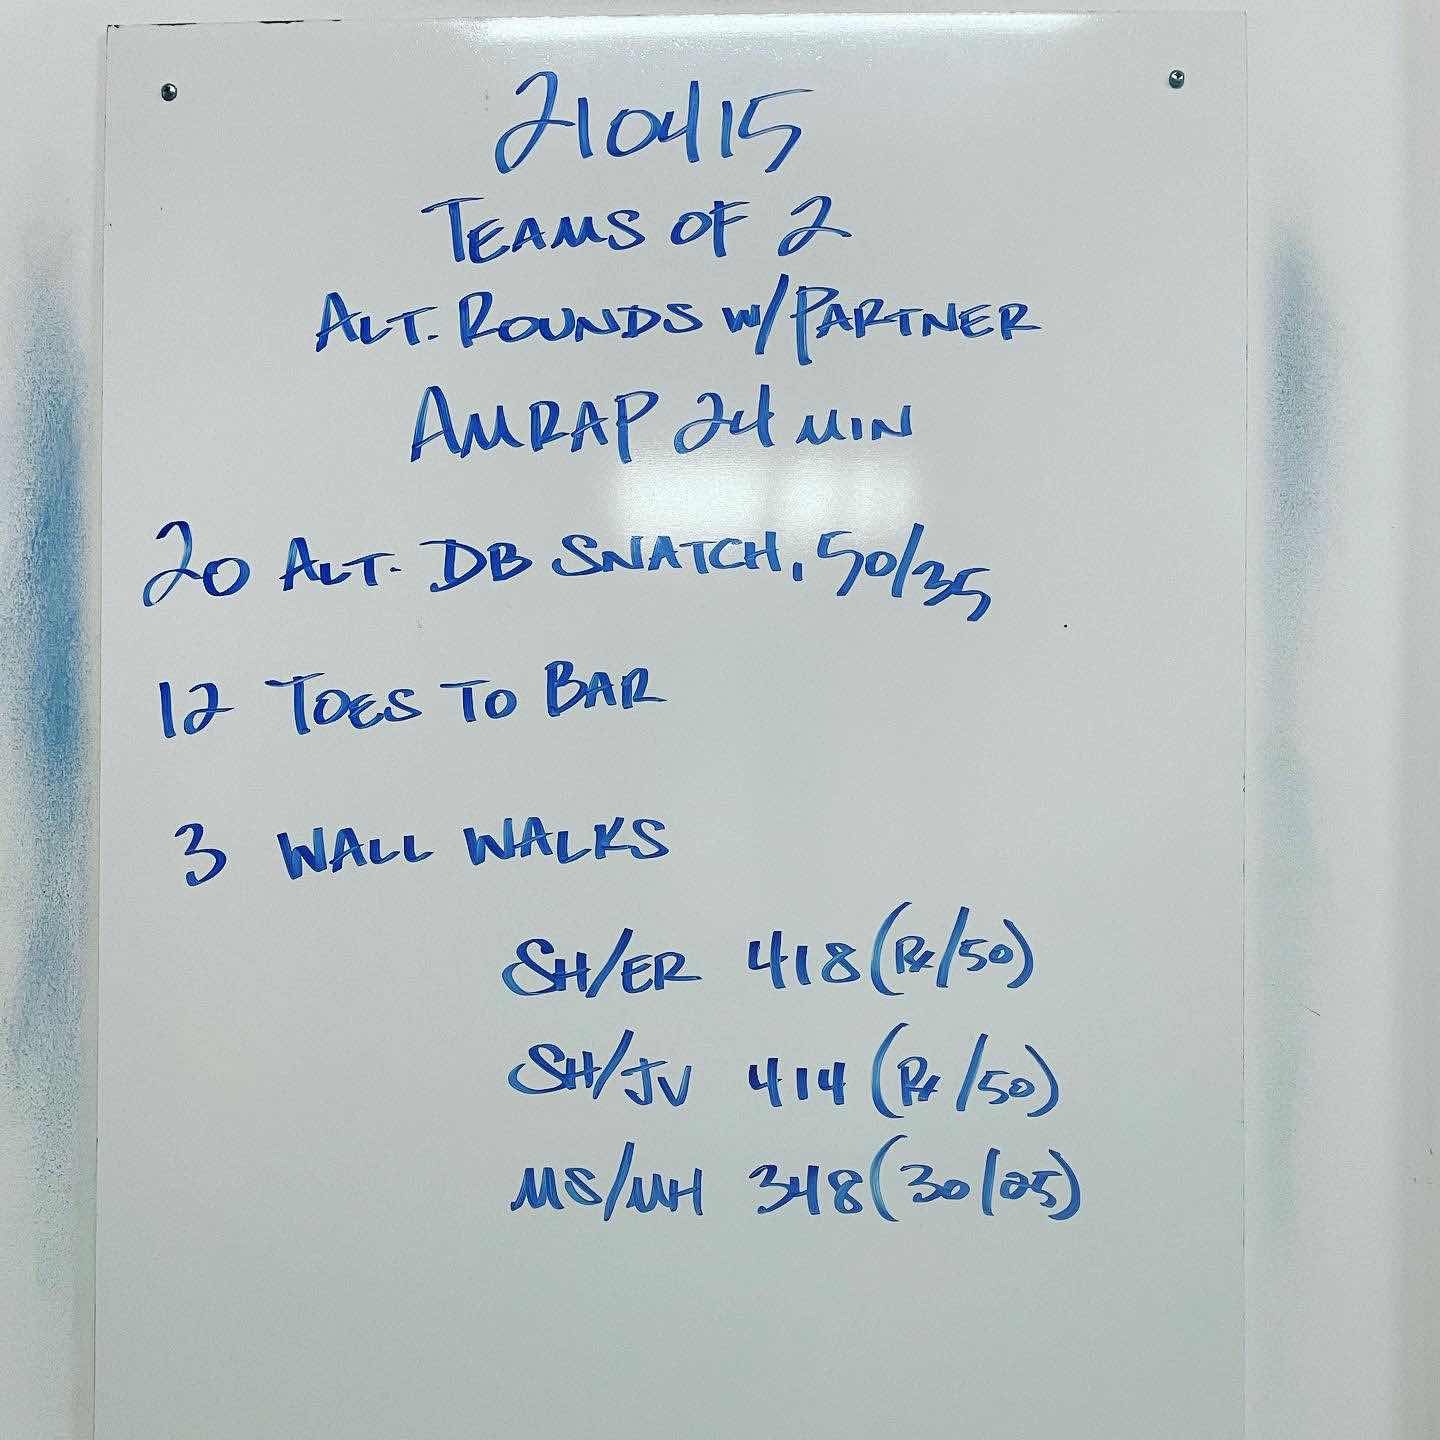 210415
TEAMS OF 2
ALT. ROUNDS W/PARTNER
AMRAP 24 MIN
20 ALT. DB SNATCH, 50/35
12 TOES TO BAR
3 WALL WALKS
SH/ER 418 (Rx/50)
SH/JV 414 (Rx/50)
MS/MH 348 (30/25)